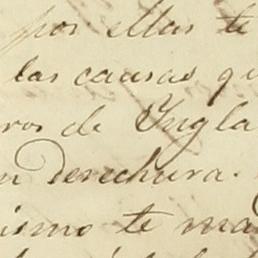 por ellas te
las causas qu
ros de Yngla
n derechura.
ismo te ma